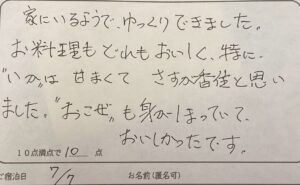 家にいるようで、ゆっくりできました。
お料理もどれもおいしく、特に、
"いか"は甘まくて さすが香住と思い
ました。"おこぜ"も身がしまっていて、
おいしかったです。
10点満点で 10 点
ご宿泊日 7/7 お名前(匿名可)